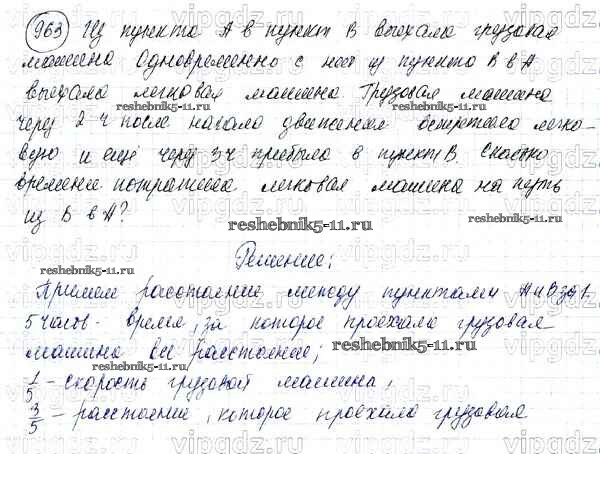 963 Из пункта А в пункт В выехала грузовая
машина одновременно с ней из пункта В в А
выехала легковая машина. Грузовая машина
через 2 ч после начала движения встретила легко-
вую и ещё через 3 ч прибыла в пункт В. Сколько
времени потратила легковая машина на путь
из В в А?
Решение:
Примем расстояние между пунктами А и В за 1
5 часов - время, за которое проехала грузовая
машина всё расстояние;
1/5 - скорость грузовой машины,
3/5 - расстояние, которое проехала грузовая
reshebnik5-11.ru
reshebnik5-11.ru
reshebnik5-11.ru
reshebnik5-11.ru
reshebnik5-11.ru
reshebnik5-11.ru
vipgdz.ru